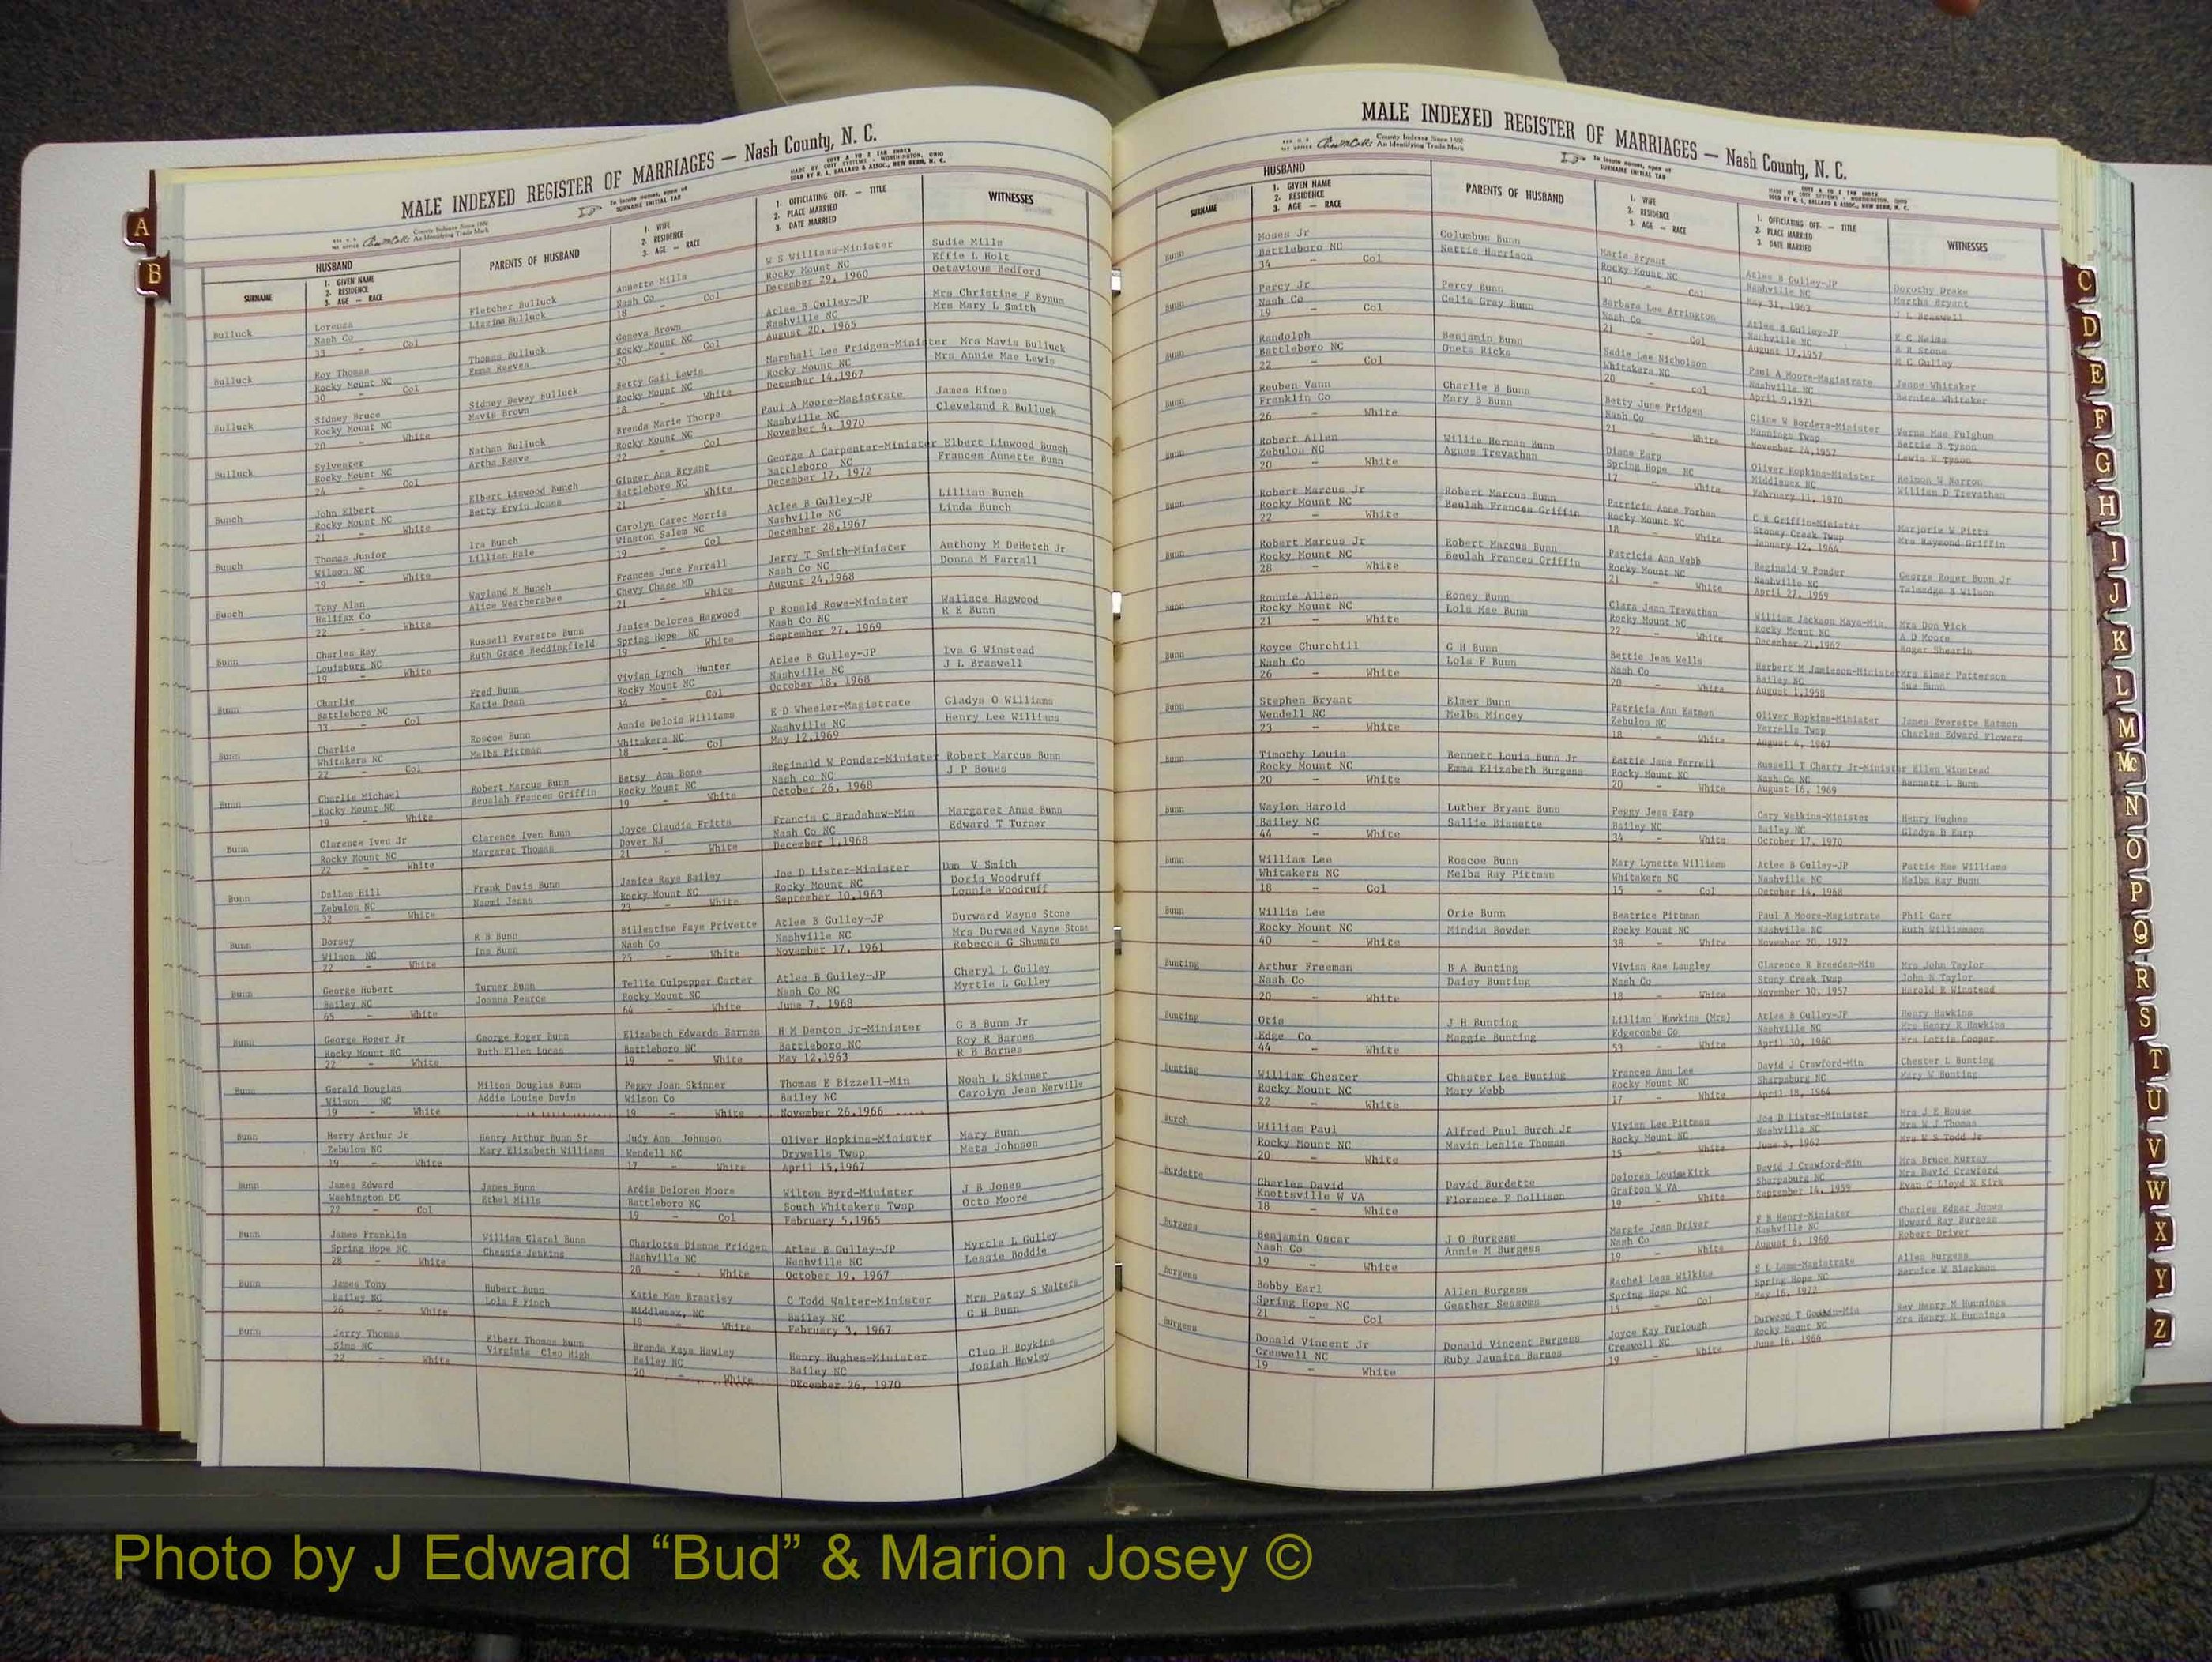 MALE INDEXED REGISTER OF MARRIAGES — Nash County, N. C.
County Indexes Since 1888
An Identifying Trade Mark
To locate names, open at
SURNAME INITIAL TAB
HUSBAND
SURNAME
1. GIVEN NAME
2. RESIDENCE
3. AGE — RACE
PARENTS OF HUSBAND
1. WIFE
2. RESIDENCE
3. AGE — RACE
1. OFFICIATING OFF. — TITLE
2. PLACE MARRIED
3. DATE MARRIED
WITNESSES
Bulluck Lorenza Fletcher Bulluck Annette Mills W S Williams-Minister Sudie Mills
Nash Co Nash Co Rocky Mount NC Effie L Holt
33 - Col 18 - Col December 29, 1960 Octavious Bedford
Bulluck Roy Thomas Thomas Bulluck Geneva Brown Atlee B Gulley-JP Mrs Christine F Bynum
Rocky Mount NC Emma Reeves Rocky Mount NC Nashville NC Mrs Mary L Smith
30 - Col 20 - Col August 20, 1965
Bulluck Sidney Bruce Sidney Dewey Bulluck Betty Gail Lewis Marshall Lee Pridgen-Minister Mrs Mavis Bulluck
Rocky Mount NC Mavis Brown Rocky Mount NC Rocky Mount NC Mrs Annie Mae Lewis
20 - White 18 - White December 14,1967
Bulluck Sylvester Nathan Bulluck Brenda Marie Thorpe Paul A Moore-Magistrate James Hines
Rocky Mount NC Artha Reave Rocky Mount NC Nashville NC Cleveland R Bulluck
24 - Col 22 - Col November 4, 1970
Bunch John Elbert Elbert Linwood Bunch Ginger Ann Bryant George A Carpenter-Minister Elbert Linwood Bunch
Rocky Mount NC Betty Ervin Jones Battleboro NC Battleboro NC Frances Annette Bunn
21 - White 21 - White December 17, 1972
Bunch Thomas Junior Ira Bunch Carolyn Carec Morris Atlee B Gulley-JP Lillian Bunch
Wilson NC Lillian Hale Winston Salem NC Nashville NC Linda Bunch
19 - White 19 - Col December 28,1967
Bunch Tony Alan Wayland M Bunch Frances June Farrall Jerry T Smith-Minister Anthony M DeHetch Jr
Halifax Co Alice Weathersbee Chevy Chase MD Nash Co NC Donna M Farrall
22 - White 21 - White August 24,1968
Bunn Charles Ray Russell Everette Bunn Janice Delores Hagwood P Ronald Rowe-Minister Wallace Hagwood
Louisburg NC Ruth Grace Beddingfield Spring Hope NC Nash Co NC R E Bunn
19 - White 19 - White September 27, 1969
Bunn Charlie Fred Bunn Vivian Lynch Hunter Atlee B Gulley-JP Iva G Winstead
Battleboro NC Katie Dean Rocky Mount NC Nashville NC J L Braswell
33 - Col 34 - Col October 18, 1968
Bunn Charlie Roscoe Bunn Annie Delois Williams E D Wheeler-Magistrate Gladys O Williams
Whitakers NC Melba Pittman Whitakers NC Nashville NC Henry Lee Williams
22 - Col 18 - Col May 12,1969
Bunn Charlie Michael Robert Marcus Bunn Betsy Ann Bone Reginald W Ponder-Minister Robert Marcus Bunn
Rocky Mount NC Beualah Frances Griffin Rocky Mount NC Nash co NC J P Bones
19 - White 19 - White October 26, 1968
Bunn Clarence Iven Jr Clarence Iven Bunn Joyce Claudia Fritts Francis C Bradshaw-Min Margaret Anne Bunn
Rocky Mount NC Margaret Thomas Dover NJ Nash Co NC Edward T Turner
22 - White 21 - White December 1,1968
Bunn Dallas Hill Frank Davis Bunn Janice Raye Bailey Joe D Lister-Minister Dan V Smith
Zebulon NC Naomi Jeans Rocky Mount NC Rocky Mount NC Doris Woodruff
32 - White 23 - White September 10,1963 Lonnie Woodruff
Bunn Dorsey R B Bunn Billestine Faye Privette Atlee B Gulley-JP Durward Wayne Stone
Wilson NC Ina Bunn Nash Co Nashville NC Mrs Durwaed Wayne Stone
22 - White 25 - White November 17, 1961 Rebecca G Shumate
Bunn George Hubert Turner Bunn Tellie Culpepper Carter Atlee B Gulley-JP Cheryl L Gulley
Bailey NC Joanna Pearce Rocky Mount NC Nash Co NC Myrtle L Gulley
65 - White 64 - White June 7, 1968
Bunn George Roger Jr George Roger Bunn Elizabeth Edwards Barnes H M Denton Jr-Minister G B Bunn Jr
Rocky Mount NC Ruth Ellen Lucas Battleboro NC Battleboro NC Roy R Barnes
22 - White 19 - White May 12,1963 R B Barnes
Bunn Gerald Douglas Milton Douglas Bunn Peggy Joan Skinner Thomas E Bizzell-Min Noah L Skinner
Wilson NC Addie Louise Davis Wilson Co Bailey NC Carolyn Jean Nerville
19 - White 19 - White November 26,1966
Bunn Herry Arthur Jr Henry Arthur Bunn Sr Judy Ann Johnson Oliver Hopkins-Minister Mary Bunn
Zebulon NC Mary Elizabeth Williams Wendell NC Drywells Twap Meta Johnson
19 - White 17 - White April 15,1967
Bunn James Edward James Bunn Ardis Delores Moore Wilton Byrd-Minister J B Jones
Washington DC Ethel Mills Battleboro NC South Whitakers Twap Otto Moore
22 - Col 19 - Col February 5,1965
Bunn James Franklin William Claral Bunn Charlotte Dianne Pridgen Atlee B Gulley-JP Myrtle L Gulley
Spring Hope NC Chessie Jenkins Nashville NC Nashville NC Lessie Boddie
28 - White 20 - White October 19, 1967
Bunn James Tony Hubert Bunn Katie Mae Brantley C Todd Walter-Minister Mrs Patsy S Walters
Bailey NC Lola F Finch Middlesex, NC Bailey NC G H Bunn
26 - White 19 - White February 3, 1967
Bunn Jerry Thomas Elbert Thomas Bunn Brenda Kaye Hawley Henry Hughes-Minister Cleo H Boykins
Sims NC Virginia Cleo High Bailey NC Bailey NC Josiah Hawley
22 - White 20 - White DEcember 26, 1970
MALE INDEXED REGISTER OF MARRIAGES — Nash County, N. C.
County Indexes Since 1888
An Identifying Trade Mark
To locate names, open at
SURNAME INITIAL TAB
HUSBAND
SURNAME
1. GIVEN NAME
2. RESIDENCE
3. AGE — RACE
PARENTS OF HUSBAND
1. WIFE
2. RESIDENCE
3. AGE — RACE
1. OFFICIATING OFF. — TITLE
2. PLACE MARRIED
3. DATE MARRIED
WITNESSES
Bunn Moses Jr Columbus Bunn Maria Bryant Atlee B Gulley-JP Dorothy Drake
Battleboro NC Nettie Harrison Rocky Mount NC Nashville NC Martha Bryant
34 - Col 30 - Col May 31, 1963 J L Braswell
Bunn Percy Jr Percy Bunn Barbara Lee Arrington Atlee B Gulley-JP
Nash Co Celia Gray Bunn Nash Co Nashville NC B R Stone
19 - Col 21 - Col August 17,1957 M C Gulley
Bunn Randolph Benjamin Bunn Sadie Lee Nicholson Paul A Moore-Magistrate Jesse Whitaker
Battleboro NC Oneta Ricks Whitakers NC Nashville NC Bernice Whitaker
22 - Col 20 - col April 9,1971
Bunn Reuben Vann Charlie B Bunn Betty June Pridgen Cline W Borders-Minister Verna Mae Fulghum
Franklin Co Mary B Bunn Nash Co Mannings Twap Bettie B Tyson
26 - White 21 - White November 24,1957 Lewis W Tyson
Bunn Robert Allen Willie Herman Bunn Diane Earp Oliver Hopkins-Minister Helmon W Narron
Zebulon NC Agnes Trevathan Spring Hope NC Middlesex NC William D Trevathan
20 - White 17 - White February 11, 1970
Bunn Robert Marcus Jr Robert Marcus Bunn Patricia Anne Forbes C R Griffin-Minister Marjorie W Pitts
Rocky Mount NC Beulah Frances Griffin Rocky Mount NC Stoney Creek Twap Mrs Raymond Griffin
22 - White 18 - White January 12, 1964
Bunn Robert Marcus Jr Robert Marcus Bunn Patricia Ann Webb Reginald W Ponder George Roger Bunn Jr
Rocky Mount NC Beulah Frances Griffin Rocky Mount NC Nashville NC Talmadge B Wilson
28 - White 21 - White April 27, 1969
Bunn Ronnie Allen Roney Bunn Clara Jean Trevathan William Jackson Mays-Min Mrs Don Vick
Rocky Mount NC Lola Mae Bunn Rocky Mount NC Rocky Mount NC A D Moore
21 - White 22 - White December 21,1962 Roger Shearin
Bunn Royce Churchill G H Bunn Bettie Jean Wells Herbert M Jamieson-Minister Mrs Elmer Patterson
Nash Co Lola F Bunn Nash Co Bailey NC Sue Bunn
26 - White 20 - White August 1,1958
Bunn Stephen Bryant Elmer Bunn Patricia Ann Eatmon Oliver Hopkins-Minister James Everette Eatmon
Wendell NC Melba Mincey Zebulon NC Ferrells Twap Charles Edward Flowers
23 - White 18 - White August 6, 1967
Bunn Timothy Louis Bennett Louis Bunn Jr Bettie Jane Farrell Russell T Cherry Jr-Minister Ellen Winstead
Rocky Mount NC Emma Elizabeth Burgess Rocky Mount NC Nash Co NC Bennett L Bunn
20 - White 20 - White August 16, 1969
Bunn Waylon Harold Luther Bryant Bunn Peggy Jean Earp Cary Walkins-Minister Henry Hughes
Bailey NC Sallie Bissette Bailey NC Bailey NC Gladys D Earp
44 - White 34 - White October 17, 1970
Bunn William Lee Roscoe Bunn Mary Lynette Williams Atlee B Gulley-JP Pattie Mae Williams
Whitakers NC Melba Ray Pittman Whitakers NC Nashville NC Melba Ray Bunn
18 - Col 15 - Col October 14, 1968
Bunn Willis Lee Orie Bunn Beatrice Pittman Paul A Moore-Magistrate Phil Carr
Rocky Mount NC Mindia Bowden Rocky Mount NC Nashville NC Ruth Williamson
40 - White 38 - White November 20, 1972
Bunting Arthur Freeman B A Bunting Vivian Rae Langley Clarence R Breeden-Min Mrs John Taylor
Nash Co Daisy Bunting Nash Co Stony Creek Twap John N Taylor
20 - White 18 - White November 30, 1957 Harold R Winstead
Bunting Otis J H Bunting Lillian Hawkins (Mrs) Atlee B Gulley-JP Henry Hawkins
Edge Co Maggie Bunting Edgecombe Co Nashville NC Mrs Henry R Hawkins
44 - White 53 - White April 30, 1960 Mrs Lottie Cooper
Bunting William Chester Chester Lee Bunting Frances Ann Lee David J Crawford-Min Chester L Bunting
Rocky Mount NC Mary Webb Rocky Mount NC Sharpsburg NC Mary W Bunting
22 - White 17 - White April 18, 1964
Burch William Paul Alfred Paul Burch Jr Vivian Lee Pittman Joe D Lister-Minister Mrs J E House
Rocky Mount NC Mavin Leslie Thomas Rocky Mount NC Nashville NC Mrs W J Thomas
20 - White 15 - White June 5, 1962 Mrs W S Todd Jr
Burdette Charles David David Burdette Dolores Louise Kirk David J Crawford-Min Mrs Bruce Murray
Knottsville W VA Florence F Dollison Grafton W VA Sharpsburg NC Mrs David Crawford
18 - White 19 - White September 14, 1959 Evan C Lloyd N Kirk
Burgess Benjamin Oscar J O Burgess Margie Jean Driver F B Henry-Minister Charles Edgar Jones
Nash Co Annie M Burgess Nash Co Nashville NC Howard Ray Burgess
19 - White 19 - White August 6, 1960 Robert Driver
Burgess Bobby Earl Allen Burgess Rachel Lean Wilkins S L Lamm-Magistrate Allen Burgess
Spring Hope NC Geather Sessoms Spring Hope NC Spring Hope NC Bernice W Blackmon
21 - Col 15 - Col May 16, 1972
Burgess Donald Vincent Jr Donald Vincent Burgess Joyce Kay Furlough Durwood T Goodwin-Min Rev Henry M Hunnings
Creswell NC Ruby Jaunita Barnes Creswell NC Rocky Mount NC Mrs Henry M Hunnings
19 - White 19 - White June 16, 1966
A
B
C
D
E
F
G
H
I
J
K
L
M
Mc
N
O
P
Q
R
S
T
U
V
W
X
Y
Z
Photo by J Edward “Bud” & Marion Josey ©